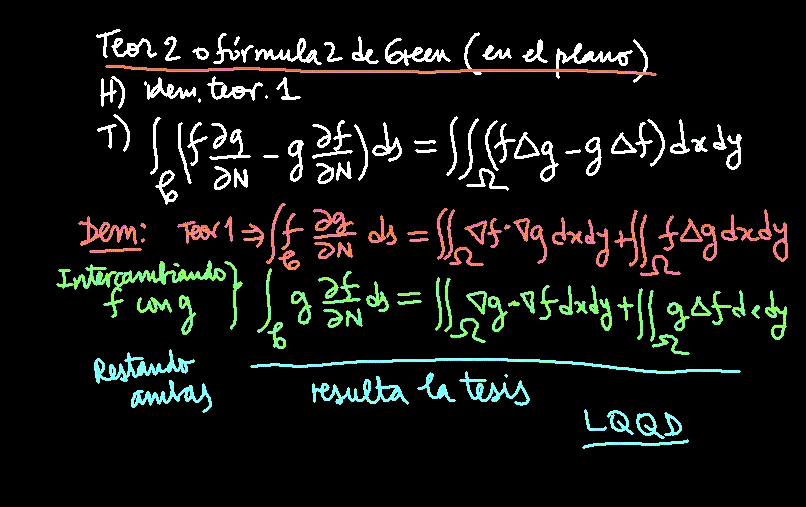 Teor 2 o fórmula 2 de Green (en el plano)
H) idem. teor. 1
T) ∫_C (f ∂g/∂N - g ∂f/∂N) ds = ∬_Ω (f Δg - g Δf) dx dy
Dem: Teor 1 ⇒ ∫_C f ∂g/∂N ds = ∬_Ω ∇f · ∇g dx dy + ∬_Ω f Δg dx dy
Intercambiando f con g } ∫_C g ∂f/∂N ds = ∬_Ω ∇g · ∇f dx dy + ∬_Ω g Δf dx dy
Restando ambas resulta la tesis
LQQD